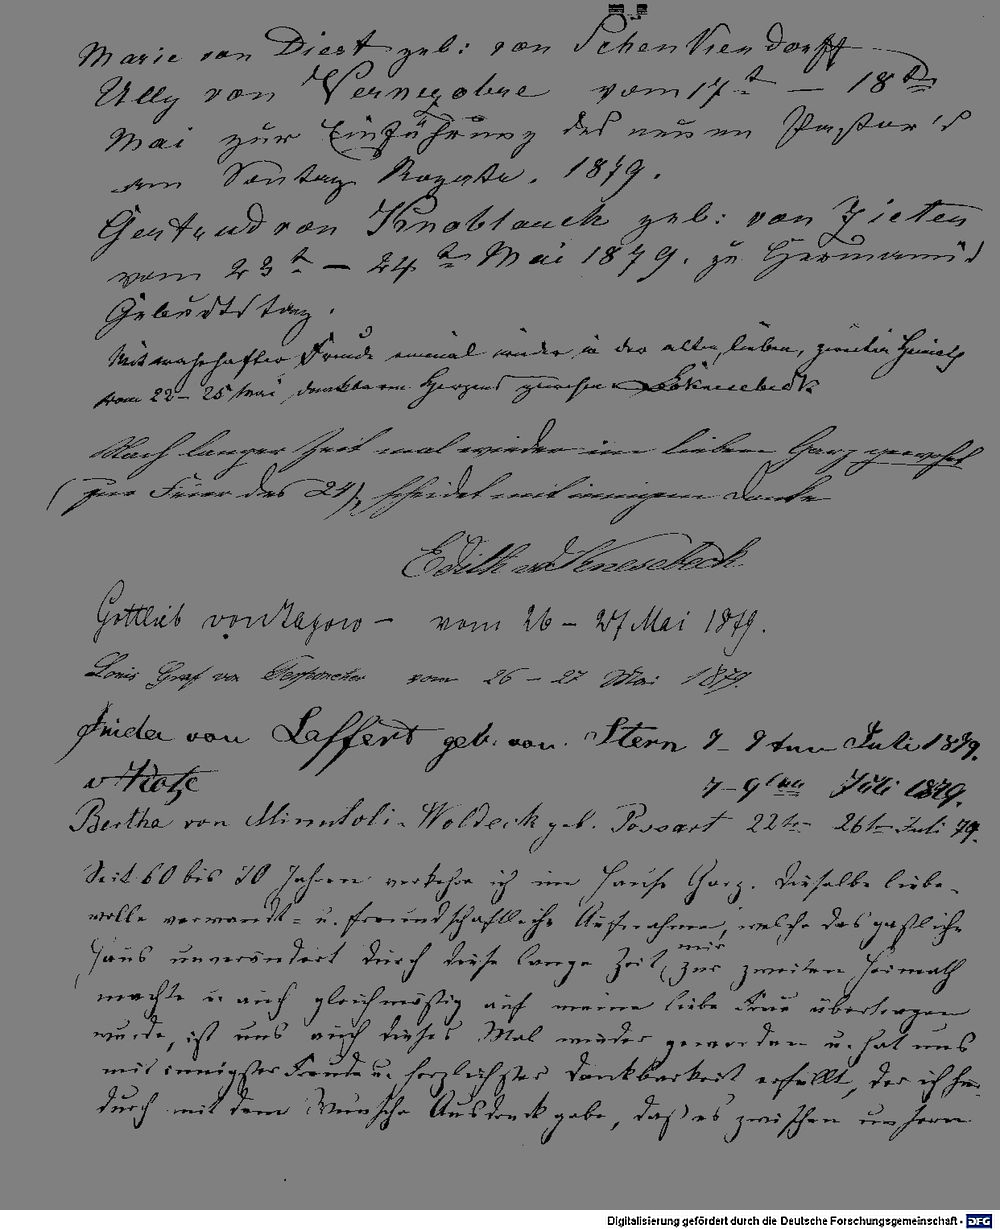 Marie von Diest geb: von Schenckendorff
Ully von Vernezobre vom 17t — 18ten
Mai zur Einführung des neuen Pastor's
am Sontag Rogate. 1879.
Gertrud von Knoblauch geb: von Zieten
vom 23t — 24ten Mai 1879. zu Hermann's
Geburtstag.
Mit wahrhafter Freude einmal wieder in der alten, lieben, zweiten Heimath
vom 22 – 25 Mai, dankbaren Herzens gewesen
Nach langer Zeit mal wieder im lieben Garz gewesen
(zur Feier des 24), scheidet mit innigem Danke
Edith v d Knesebeck
Gottlieb von Jagow – vom 26 – 27 Mai 1879.
Louis Graf von Perponcher vom 26 – 27 Mai 1879.
Frieda von Laffert geb. von Stern 7 – 9ten Juli 1879.
v Klotze 7 – 9ten Juli 1879.
Bertha von Minutoli-Woldeck geb. Possart 22ten 26ten Juli 79.
Seit 60 bis 70 Jahren verkehre ich im Hause Garz. Dieselbe liebe-
volle verwandt- u. freundschaftliche Aufnahme, welche das gastliche
Haus unverändert durch diese lange Zeit, mir zur zweiten Heimath
machte u auch gleichmäßig auf meine liebe Frau übertragen
wurde, ist uns auch dieses Mal wieder geworden u. hat uns
mit innigster Freude u. herzlichster Dankbarkeit erfüllt, der ich hier-
durch mit dem Wunsche Ausdruck gebe, daß es zwischen unseren
Digitalisierung gefördert durch die Deutsche Forschungsgemeinschaft - DFG